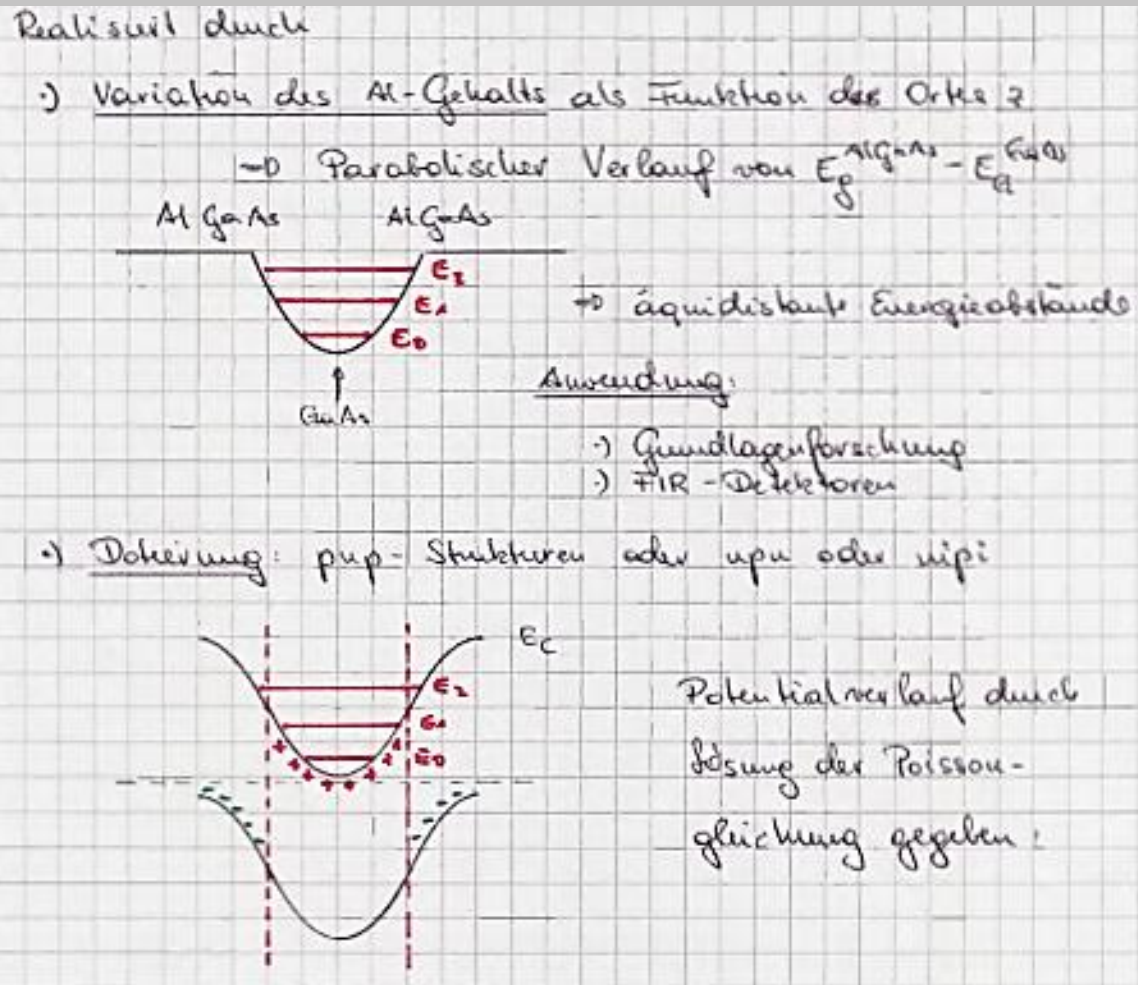 Realisiert durch
·) Variation des Al-Gehalts als Funktion des Ortes z
→ Parabolischer Verlauf von E_g^AlGaAs - E_g^GaAs
AlGaAs AlGaAs
E_2
E_1
E_0
→ äquidistante Energieabstände
GaAs
Anwendung:
·) Grundlagenforschung
·) FIR - Detektoren
·) Dotierung: pnp- Strukturen oder npn oder nipi
E_C
E_2
E_1
E_0
Potentialverlauf durch
Lösung der Poisson-
gleichung gegeben: